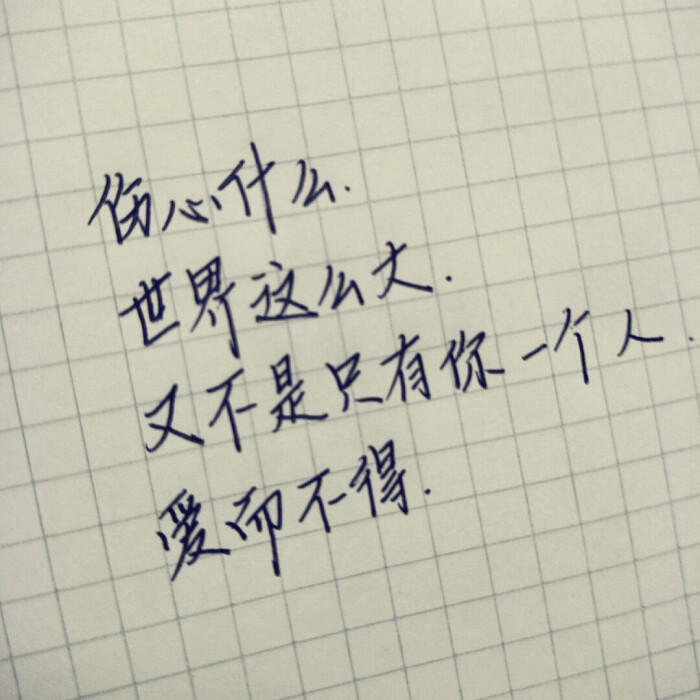 伤心什么.
世界这么大.
又不是只有你一个人.
爱而不得.